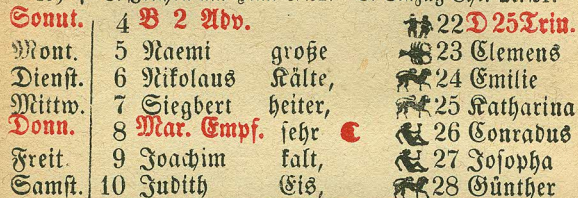 Sonnt. 4 B 2 Adv. 22 D 25 Trin.
Mont. 5 Naemi große 23 Clemens
Dienst. 6 Nikolaus Kälte, 24 Emilie
Mittw. 7 Siegbert heiter, 25 Katharina
Donn. 8 Mar. Empf. sehr 26 Conradus
Freit. 9 Joachim kalt, 27 Josopha
Samst. 10 Judith Eis, 28 Günther